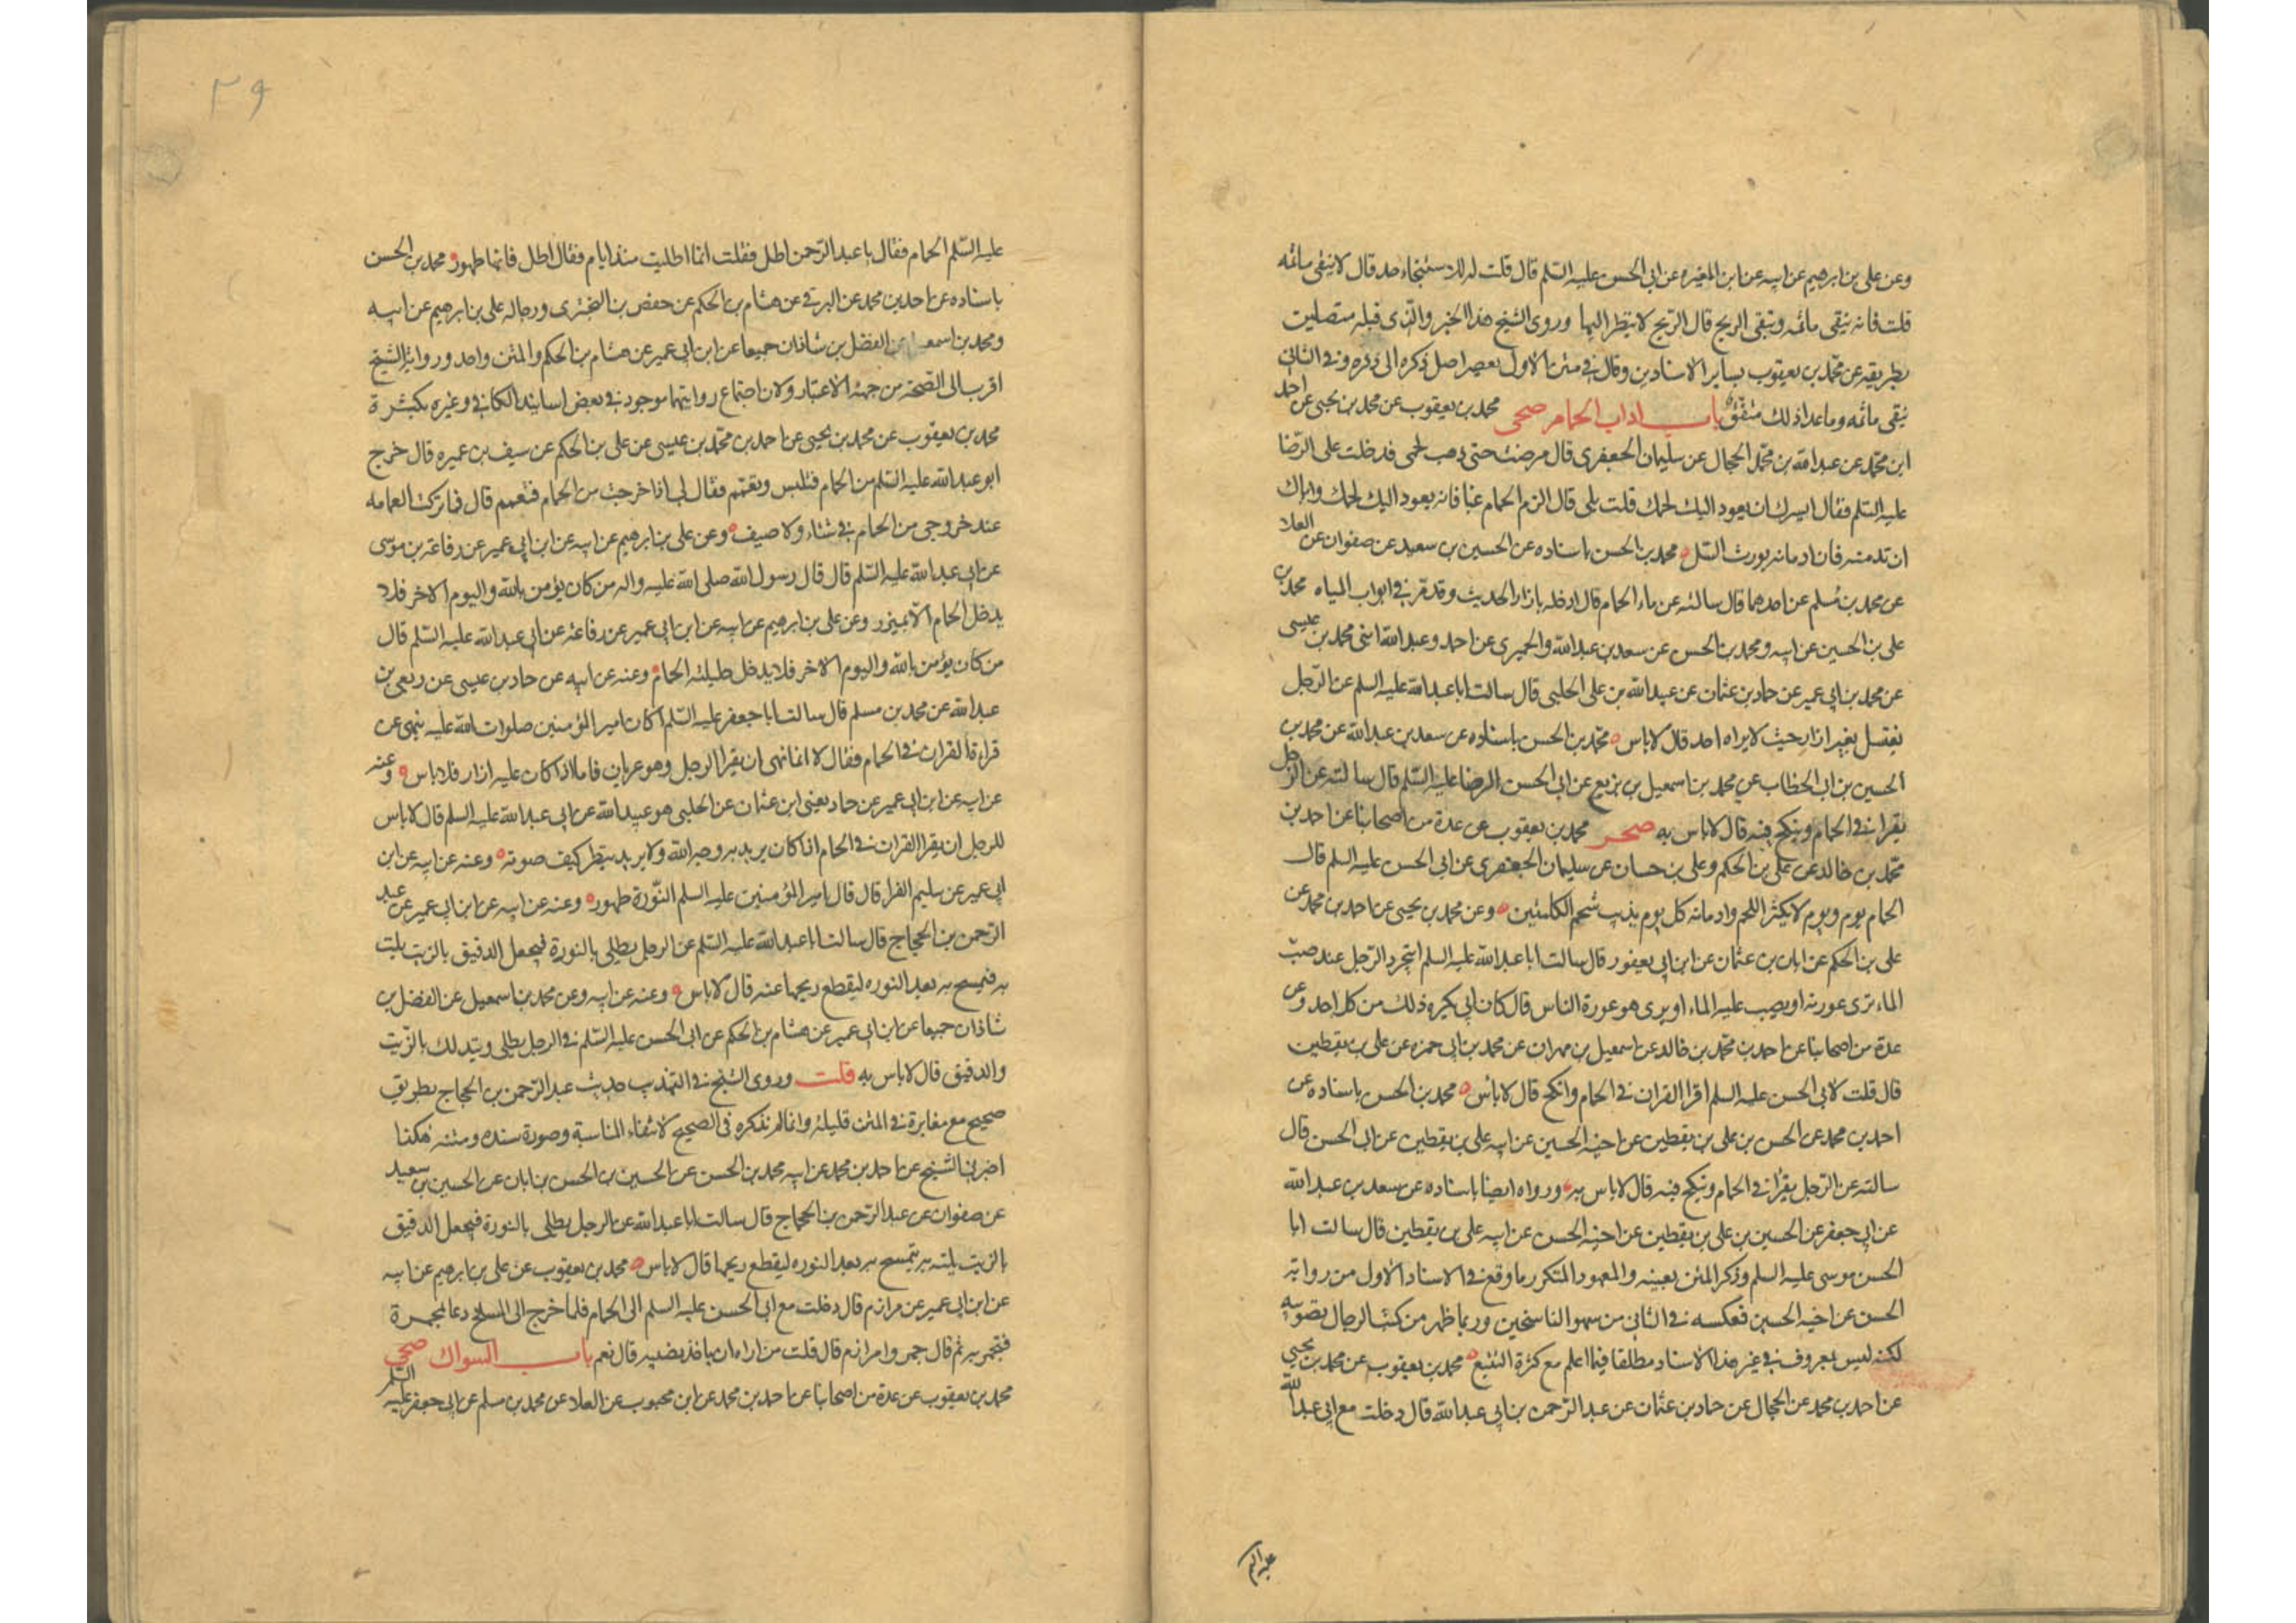 وعن علي بن ابرهيم عن ابيه عن ابن المغيره عن ابي الحسن عليه السّلم قال قلت له للاستنجاء حد قال لا ينقى ماثمه
قلت فانه ينقى ماثمه وتبقى الريح قال الريح لا ينظر اليها وروى الشيخ هذا الخبر والّذى قبله متصلين
بطريقه عن محمّد بن يعقوب بساير الاسنادين وقال في متن الاول بعصر اصل ذكره الى ذكره وفي الثاني
ينقى ماثمه وما عدا ذلك متفق باب اداب الحمام صحى محمد بن يعقوب عن محمد بن يحيى عن احمد
ابن محمّد عن عبد الله بن محمّد الحجال عن سليمان الجعفرى قال مرضت حتى ذهب لحمى فدخلت على الرّضا
عليه السّلم فقال ايسرك ان يعود اليك لحمك قلت بلى قال الزم الحمام غبا فانه يعود اليك لحمك واياك
ان تدمنه فان ادمانه يورث السّل محمد بن الحسن باسناده عن الحسين بن سعيد عن صفوان عن العلا
عن محمد بن مسلم عن احدهما قال سالته عن ماء الحمام قال ادخله بازار الحديث وقد مر في ابواب المياه محمد بن
علي بن الحسين عن ابيه ومحمد بن الحسن عن سعد بن عبد الله والحميرى عن احمد وعبد الله ابنى محمد بن عيسى
عن محمد بن ابي عمير عن حماد بن عثمان عن عبيد الله بن علي الحلبى قال سالت ابا عبد الله عليه السلم عن الرّجل
يغتسل بغير ازار حيث لا يراه احد قال لا باس محمّد بن الحسن باسناده عن سعد بن عبد الله عن محمد بن
الحسين بن ابي الخطاب عن محمد بن اسمعيل بن بزيع عن ابي الحسن الرضا عليه السّلم قال سالته عن الرّجل
يقرا في الحمام وينكح فيه قال لا باس به صحر محمد بن يعقوب عن عدة من اصحابنا عن احمد بن
محمّد بن خالد عن علي بن الحكم وعلي بن حسان عن سليمان الجعفرى عن ابي الحسن عليه السلم قال
الحمام يوم ويوم لا يكثر اللحم وادمانه كل يوم يذيب شحم الكليتين وعن محمد بن يحيى عن احمد بن محمد عن
علي بن الحكم عن ابان بن عثمان عن ابن ابي يعفور قال سالت ابا عبد الله عليه السلم ايتجرد الرّجل عند صبّ
الماء ترى عورته او يصب عليه الماء او يرى هو عورة الناس قال كان ابي يكره ذلك من كل احد وعن
عدة من اصحابنا عن احمد بن محمّد بن خالد عن اسمعيل بن مهران عن محمد بن ابي حمزه عن علي بن يقطين
قال قلت لابي الحسن عليه السلم اقرا القران في الحمام وانكح قال لا باس محمد بن الحسن باسناده عن
احمد بن محمد عن الحسن بن علي بن يقطين عن اخيه الحسين عن ابيه علي بن يقطين عن ابي الحسن قال
سالته عن الرّجل يقرا في الحمام وينكح فيه قال لا باس به ورواه ايضا باسناده عن سعد بن عبد الله
عن ابي جعفر عن الحسين بن علي بن يقطين عن اخيه الحسن عن ابيه علي بن يقطين قال سالت ابا
الحسن موسى عليه السلم وذكر المتن بعينه والمعهود المتكرر ما وقع في الاسناد الاول من رواية
الحسن عن اخيه الحسين فعكسه في الثاني من سهو الناسخين وربما ظهر من كتب الرجال تصويبه
لكنه ليس بمعروف في غير هذا الاسناد مطلقا فيما اعلم مع كثرة التتبع محمد بن يعقوب عن محمد بن يحيى
عن احمد بن محمد عن الحجال عن حماد بن عثمان عن عبد الرّحمن بن ابي عبد الله قال دخلت مع ابي عبد الله
٣٩
عليه السّلم الحمام فقال يا عبد الرّحمن اطل فقلت انما اطليت منذ ايام فقال اطل فانها طهور محمد بن الحسن
باسناده عن احمد بن محمد عن البرقي عن هشام بن الحكم عن حفص بن البخترى ورجاله علي بن ابرهيم عن ابيه
ومحمد بن اسمعيل عن الفضل بن شاذان جميعا عن ابن ابي عمير عن هشام بن الحكم والمتن واحد ورواية الشيخ
اقرب الى الصّحة من جهة الاعتبار ولان اجتماع روايتهما موجود في بعض اسانيد الكافي وغيره بكثرة
محمد بن يعقوب عن محمد بن يحيى عن احمد بن محمّد بن عيسى عن علي بن الحكم عن سيف بن عميره قال خرج
ابو عبد الله عليه السّلم من الحمام فتلبس وتعمّم فقال لي اذا خرجت من الحمام فتعمم قال فما تركت العمامه
عند خروجي من الحمام في شتاء ولا صيف وعن علي بن ابرهيم عن ابيه عن ابن ابي عمير عن رفاعة بن موسى
عن ابي عبد الله عليه السّلم قال قال رسول الله صلى الله عليه واله من كان يؤمن بالله واليوم الاخر فلا
يدخل الحمام الا بميزر وعن علي بن ابرهيم عن ابيه عن ابن ابي عمير عن رفاعة عن ابي عبد الله عليه السّلم قال
من كان يؤمن بالله واليوم الاخر فلا يدخل حليلته الحمام وعنه عن ابيه عن حماد بن عيسى عن ربعي بن
عبد الله عن محمد بن مسلم قال سالت ابا جعفر عليه السّلم اكان امير المؤمنين صلوات الله عليه ينهى عن
قراءة القران في الحمام فقال لا انما نهى ان يقرا الرجل وهو عريان فاما اذا كان عليه ازار فلا باس وعنه
عن ابيه عن ابن ابي عمير عن حماد يعني ابن عثمان عن الحلبى هو عبيد الله عن ابي عبد الله عليه السلم قال لا باس
للرجل ان يقرا القران في الحمام اذا كان يريد به وجه الله ولا يريد ينظر كيف صوته وعنه عن ابيه عن ابن
ابي عمير عن سليم الفرا قال قال امير المؤمنين عليه السلم النّورة طهور وعنه عن ابيه عن ابن ابي عمير عن عبد
الرّحمن بن الحجاج قال سالت ابا عبد الله عليه السّلم عن الرجل يطلى بالنورة فيجعل الدقيق بالزيت يلت
به فيمسح به بعد النوره ليقطع ريحها عنه قال لا باس وعنه عن ابيه وعن محمد بن اسمعيل عن الفضل بن
شاذان جميعا عن ابن ابي عمير عن هشام بن الحكم عن ابي الحسن عليه السّلم في الرجل يطلى ويتدلك بالزيت
والدقيق قال لا باس به قلت وروى الشيخ في التهذيب حديث عبد الرّحمن بن الحجاج بطريق
صحيح مع مغايرة في المتن قليلة وانما لم نذكره في الصحيح لانتفاء المناسبة وصورة سنده ومتنه هكذا
اخبرني الشيخ عن احمد بن محمد عن ابيه محمد بن الحسن عن الحسين بن الحسن بن ابان عن الحسين بن سعيد
عن صفوان عن عبد الرّحمن بن الحجاج قال سالت ابا عبد الله عن الرجل يطلى بالنورة فيجعل الدقيق
بالزيت يلته به يتمسح به بعد النوره ليقطع ريحها قال لا باس محمد بن يعقوب عن علي بن ابرهيم عن ابيه
عن ابن ابي عمير عن مرازم قال دخلت مع ابي الحسن عليه السلم الى الحمام فلما خرج الى المسلخ دعا بمجمرة
فتجمر به ثم قال جمروا مرازم قال قلت من اراد ان ياخذ نصيبه قال نعم باب السواك صحى
محمد بن يعقوب عن عدة من اصحابنا عن احمد بن محمد عن ابن محبوب عن العلا عن محمد بن مسلم عن ابي جعفر عليه السّلم